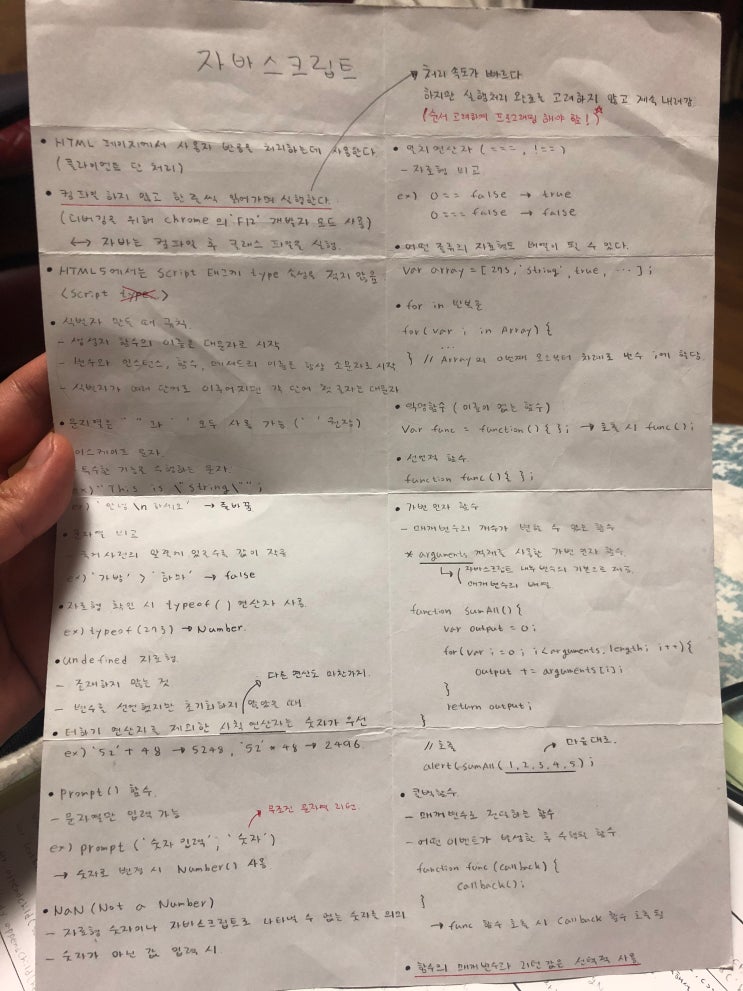 자바스크립트
• HTML 페이지에서 사용자 반응을 처리하는데 사용한다
(클라이언트 단 처리)
• 컴파일 하지 않고 한 줄씩 읽어가며 실행한다.
(디버깅을 위해 chrome의 'F12' 개발자 모드 사용)
↔ 자바는 컴파일 후 클래스 파일을 실행.
• HTML5에서는 script 태그에 type 속성을 적지 않음
<script type >
• 식별자 만들 때 규칙.
- 생성자 함수의 이름은 대문자로 시작
- 변수와 인스턴스, 함수, 메서드의 이름은 항상 소문자로 시작
- 식별자가 여러 단어로 이루어지면 각 단어 첫 글자는 대문자
• 문자열은 " " 와 ' ' 모두 사용 가능 (' ' 권장)
이스케이프 문자.
특수한 기능을 수행하는 문자.
ex) "This is \"String\"";
ex) '안녕\n하세요' → 줄바꿈
• 문자열 비교
- 국어사전의 앞쪽에 있을수록 값이 작음
ex) '가방' > '하마' → false
• 자료형 확인 시 typeof() 연산자 사용.
ex) typeof(273) → Number.
• undefined 자료형
- 존재하지 않는 것
- 변수를 선언했지만 초기화하지 않았을 때.
다른 연산도 마찬가지.
• 더하기 연산자를 제외한 사칙연산자는 숫자가 우선
ex) '52' + 48 → 5248, '52' * 48 → 2496.
• prompt() 함수.
- 문자열만 입력 가능
무조건 문자열 리턴.
ex) prompt ('숫자 입력', '숫자')
→ 숫자로 변경 시 Number() 사용
• NaN (Not a Number)
- 자료형 숫자이나 자바스크립트로 나타낼 수 없는 숫자를 의미
- 숫자가 아닌 값 입력 시.
처리 속도가 빠르다
하지만 실행처리 완료를 고려하지 않고 계속 내려감.
(순서 고려하여 프로그래밍 해야 함!)
• 일치연산자 (===, !==)
- 자료형 비교
ex) 0 == false → true
0 === false → false
• 어떤 종류의 자료형도 배열이 될 수 있다.
var array = [273, 'string', true, ...];
• for in 반복문
for(var i in Array) {
...
} // Array의 0번째 요소부터 차례로 변수 i에 할당.
• 익명함수 (이름이 없는 함수)
var func = function() { }; → 호출 시 func();
• 선언적 함수.
function func() { };
• 가변 인자 함수
- 매개변수의 개수가 변할 수 있는 함수
* arguments 객체를 사용한 가변 인자 함수.
자바스크립트 내부 변수의 기본으로 제공.
매개변수의 배열
function sumAll() {
var output = 0;
for(var i = 0; i < arguments.length; i++) {
output += arguments[i];
}
return output;
}
// 호출
마음대로.
alert(sumAll(1, 2, 3, 4, 5));
• 콜백함수.
- 매개변수로 전달하는 함수
- 어떤 이벤트가 발생한 후 수행될 함수
function func (callback) {
callback();
}
→ func 함수 호출 시 callback 함수 호출됨
• 함수의 매개변수와 리턴 값은 선택적 사용